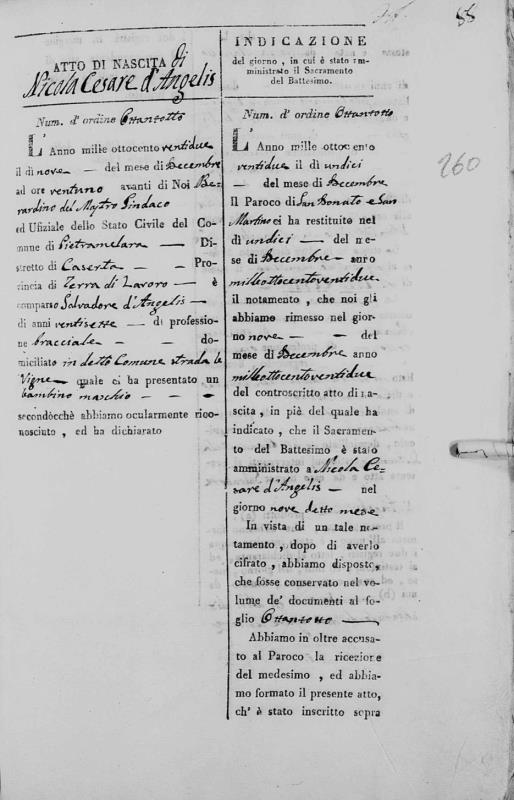 88
ATTO DI NASCITA di
Nicola Cesare d'Angelis
Num. d'ordine Ottantotto
L'Anno mille ottocento ventidue
il dì nove — del mese di Decembre
ad ore ventuno avanti di Noi Be-
rardino del Mastro Sindaco
ed Ufiziale dello Stato Civile del Co-
mune di Pietramelara — Di-
stretto di Caserta — — Pro-
vincia di Terra di Lavoro — è
comparso Salvadore d'Angelis —
di anni ventisette — di professio-
ne bracciale — — do-
miciliato in detto Comune strada le
Vigne — quale ci ha presentato un
bambino maschio — — —
secondocchè abbiamo ocularmente rico-
nosciuto , ed ha dichiarato
INDICAZIONE
del giorno , in cui è stato am-
ministrato il Sacramento
del Battesimo.
Num. d'ordine Ottantotto
L'Anno mille ottocento
ventidue il dì undici
— del mese di Decembre
Il Paroco di San Donato e San
Martino ci ha restituito nel
dì undici — del me-
se di Decembre — anno
milleottocentoventidue
il notamento , che noi gli
abbiamo rimesso nel gior-
no nove — — del
mese di Decembre anno
milleottocentoventidue
del controscritto atto di na-
scita , in piè del quale ha
indicato , che il Sacramen-
to del Battesimo è stato
amministrato a Nicola Ce-
sare d'Angelis — nel
giorno nove detto mese
In vista di un tale no-
tamento , dopo di averlo
cifrato , abbiamo disposto,
che fosse conservato nel vo-
lume de' documenti al fo-
glio Ottantotto —
Abbiamo in oltre accusa-
to al Paroco la ricezione
del medesimo , ed abbia-
mo formato il presente atto,
ch' è stato inscritto sopra
260